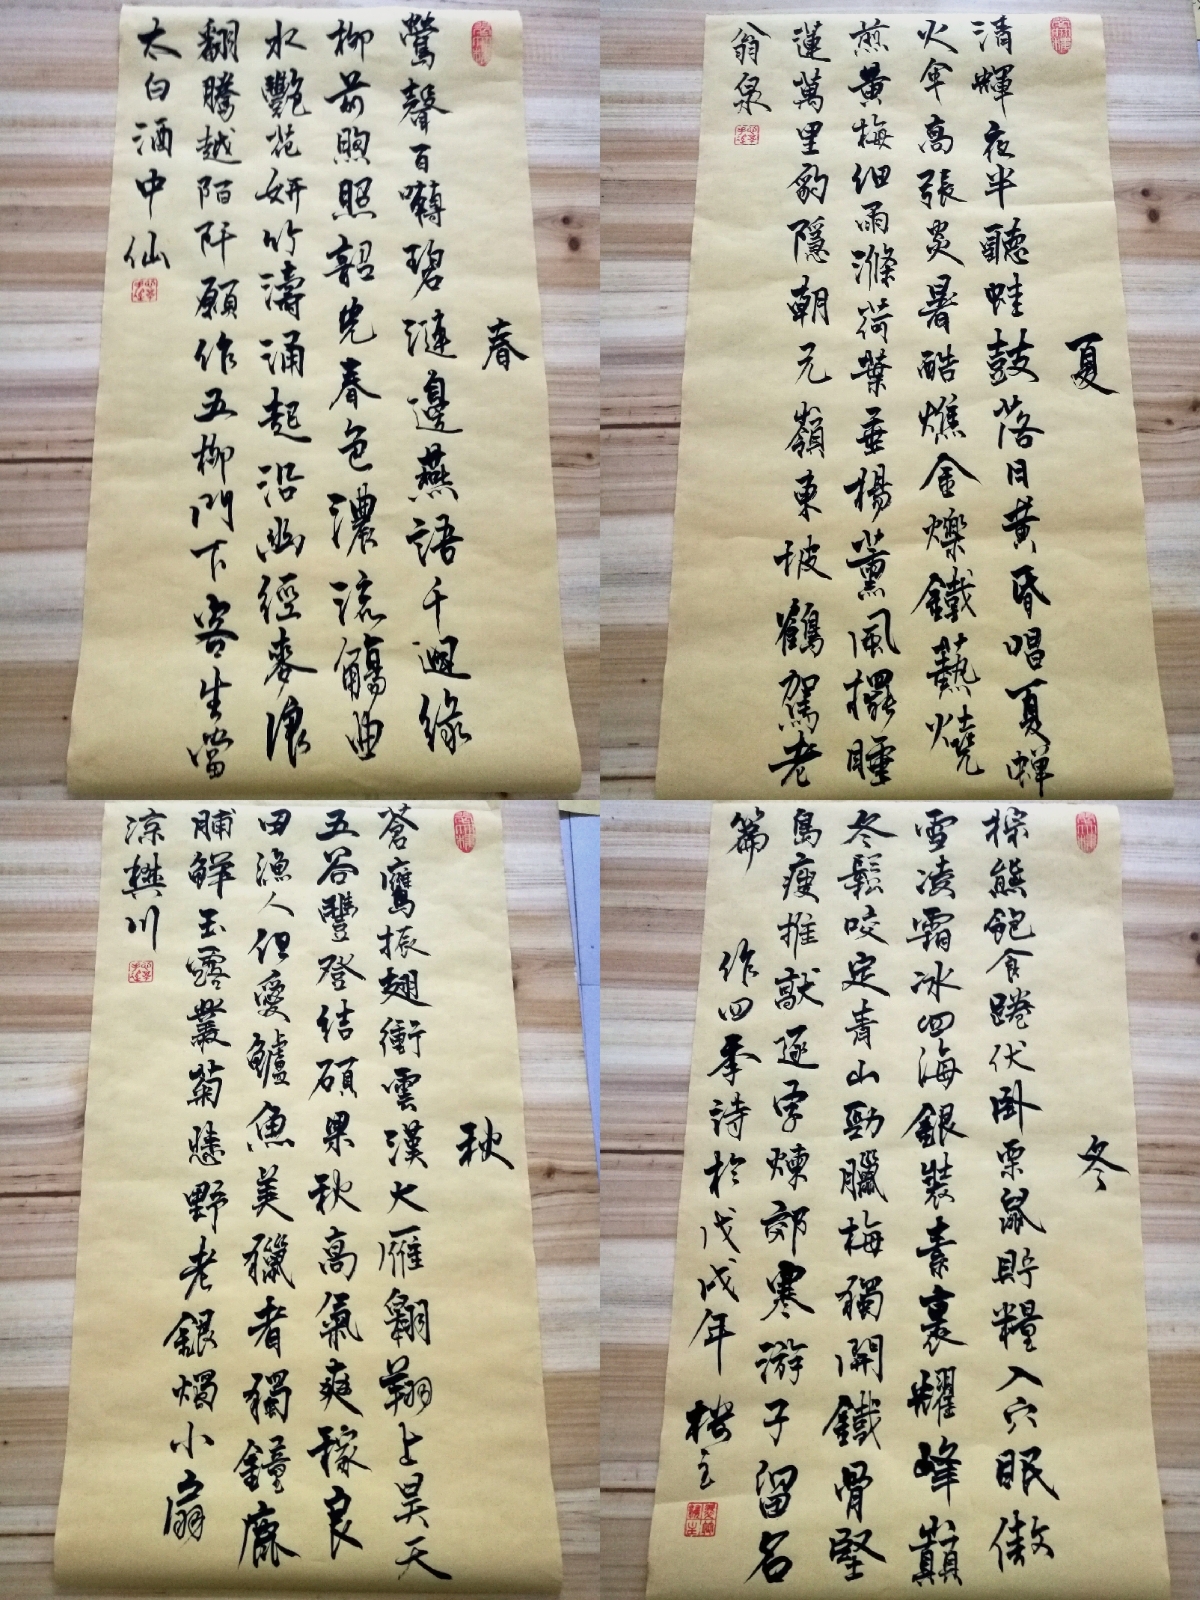 春
鶯聲百囀碧漣邊燕語千迴緣
柳前煦照韶光春色濃流觴曲
水艷花妍竹濤涌起沿幽徑麥浪
翻騰越陌阡願作五柳門下客生當
太白酒中仙
夏
清輝夜半聽蛙鼓落日黄昏唱夏蟬
火傘高張炎暑酷燋金爍鐵熱燒
煎黄梅細雨滌荷葉垂楊薰風擺睡
蓮萬里豹隱朝元嶺東坡鶴駕老
翁泉
秋
蒼鷹振翅衝雲漢大雁翱翔上昊天
五谷豐登結碩果秋高氣爽稼良
田漁人但愛鱸魚美獵者獨鐘鹿
脯鮮玉露叢菊悲野老銀燭小扇
涼樊川
冬
棕熊飽食蜷伏卧栗鼠貯糧入穴眠傲
雪凌霜冰四海銀裝素裹耀峰巔
冬鬆咬定青山勁臘梅獨開鐵骨堅
島瘦推敲逐字煉郊寒游子留名
篇
作四季詩於戊戌年 樓主